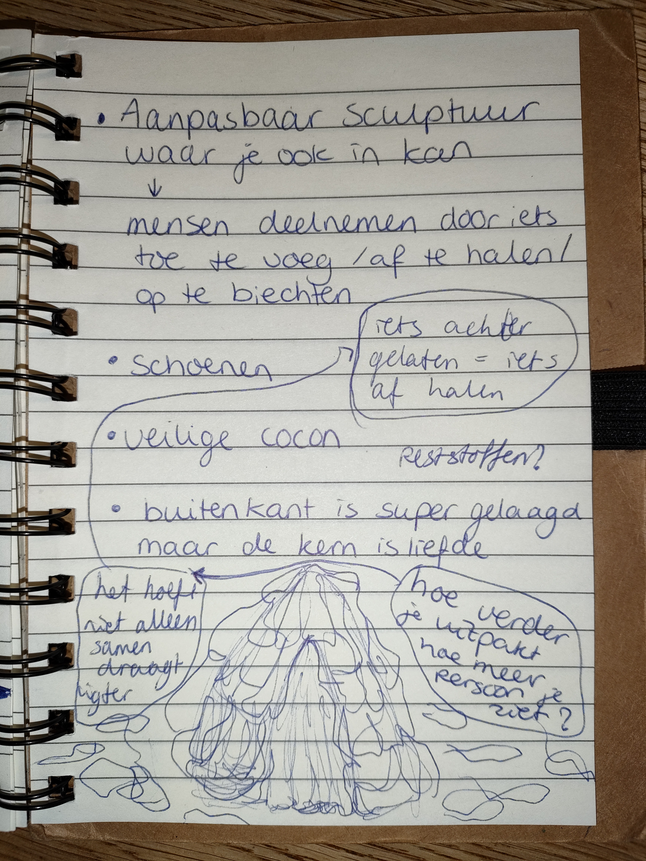 • Aanpasbaar sculptuur
waar je ook in kan
↓
mensen deelnemen door iets
toe te voeg /af te halen/
op te biechten
• schoenen
iets achter
gelaten = iets
af halen
• veilige cocon
Reststoffen?
• buitenkant is super gelaagd
maar de kern is liefde
het hoeft
niet alleen
samen
draagt
ligter
hoe verder
je uitpakt
hoe meer
Persoon je
ziet?